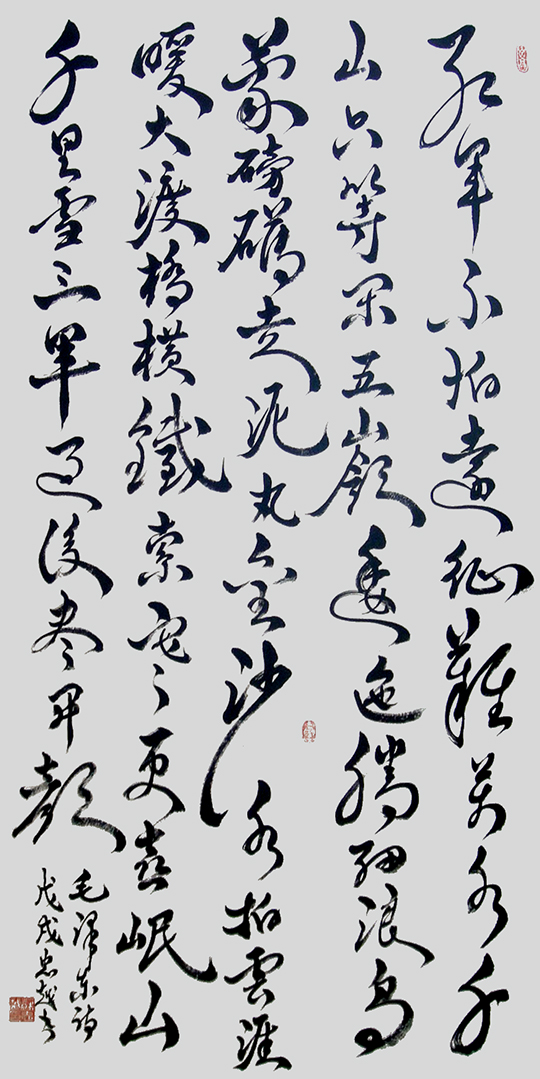 紅軍不怕遠征難万水千
山只等閑五嶺逶迤騰細浪烏
蒙磅礴走泥丸金沙水拍雲涯
暖大渡橋横鐵索寒更喜岷山
千里雪三軍過後盡開顏
毛澤东詩
戊戌忠越書